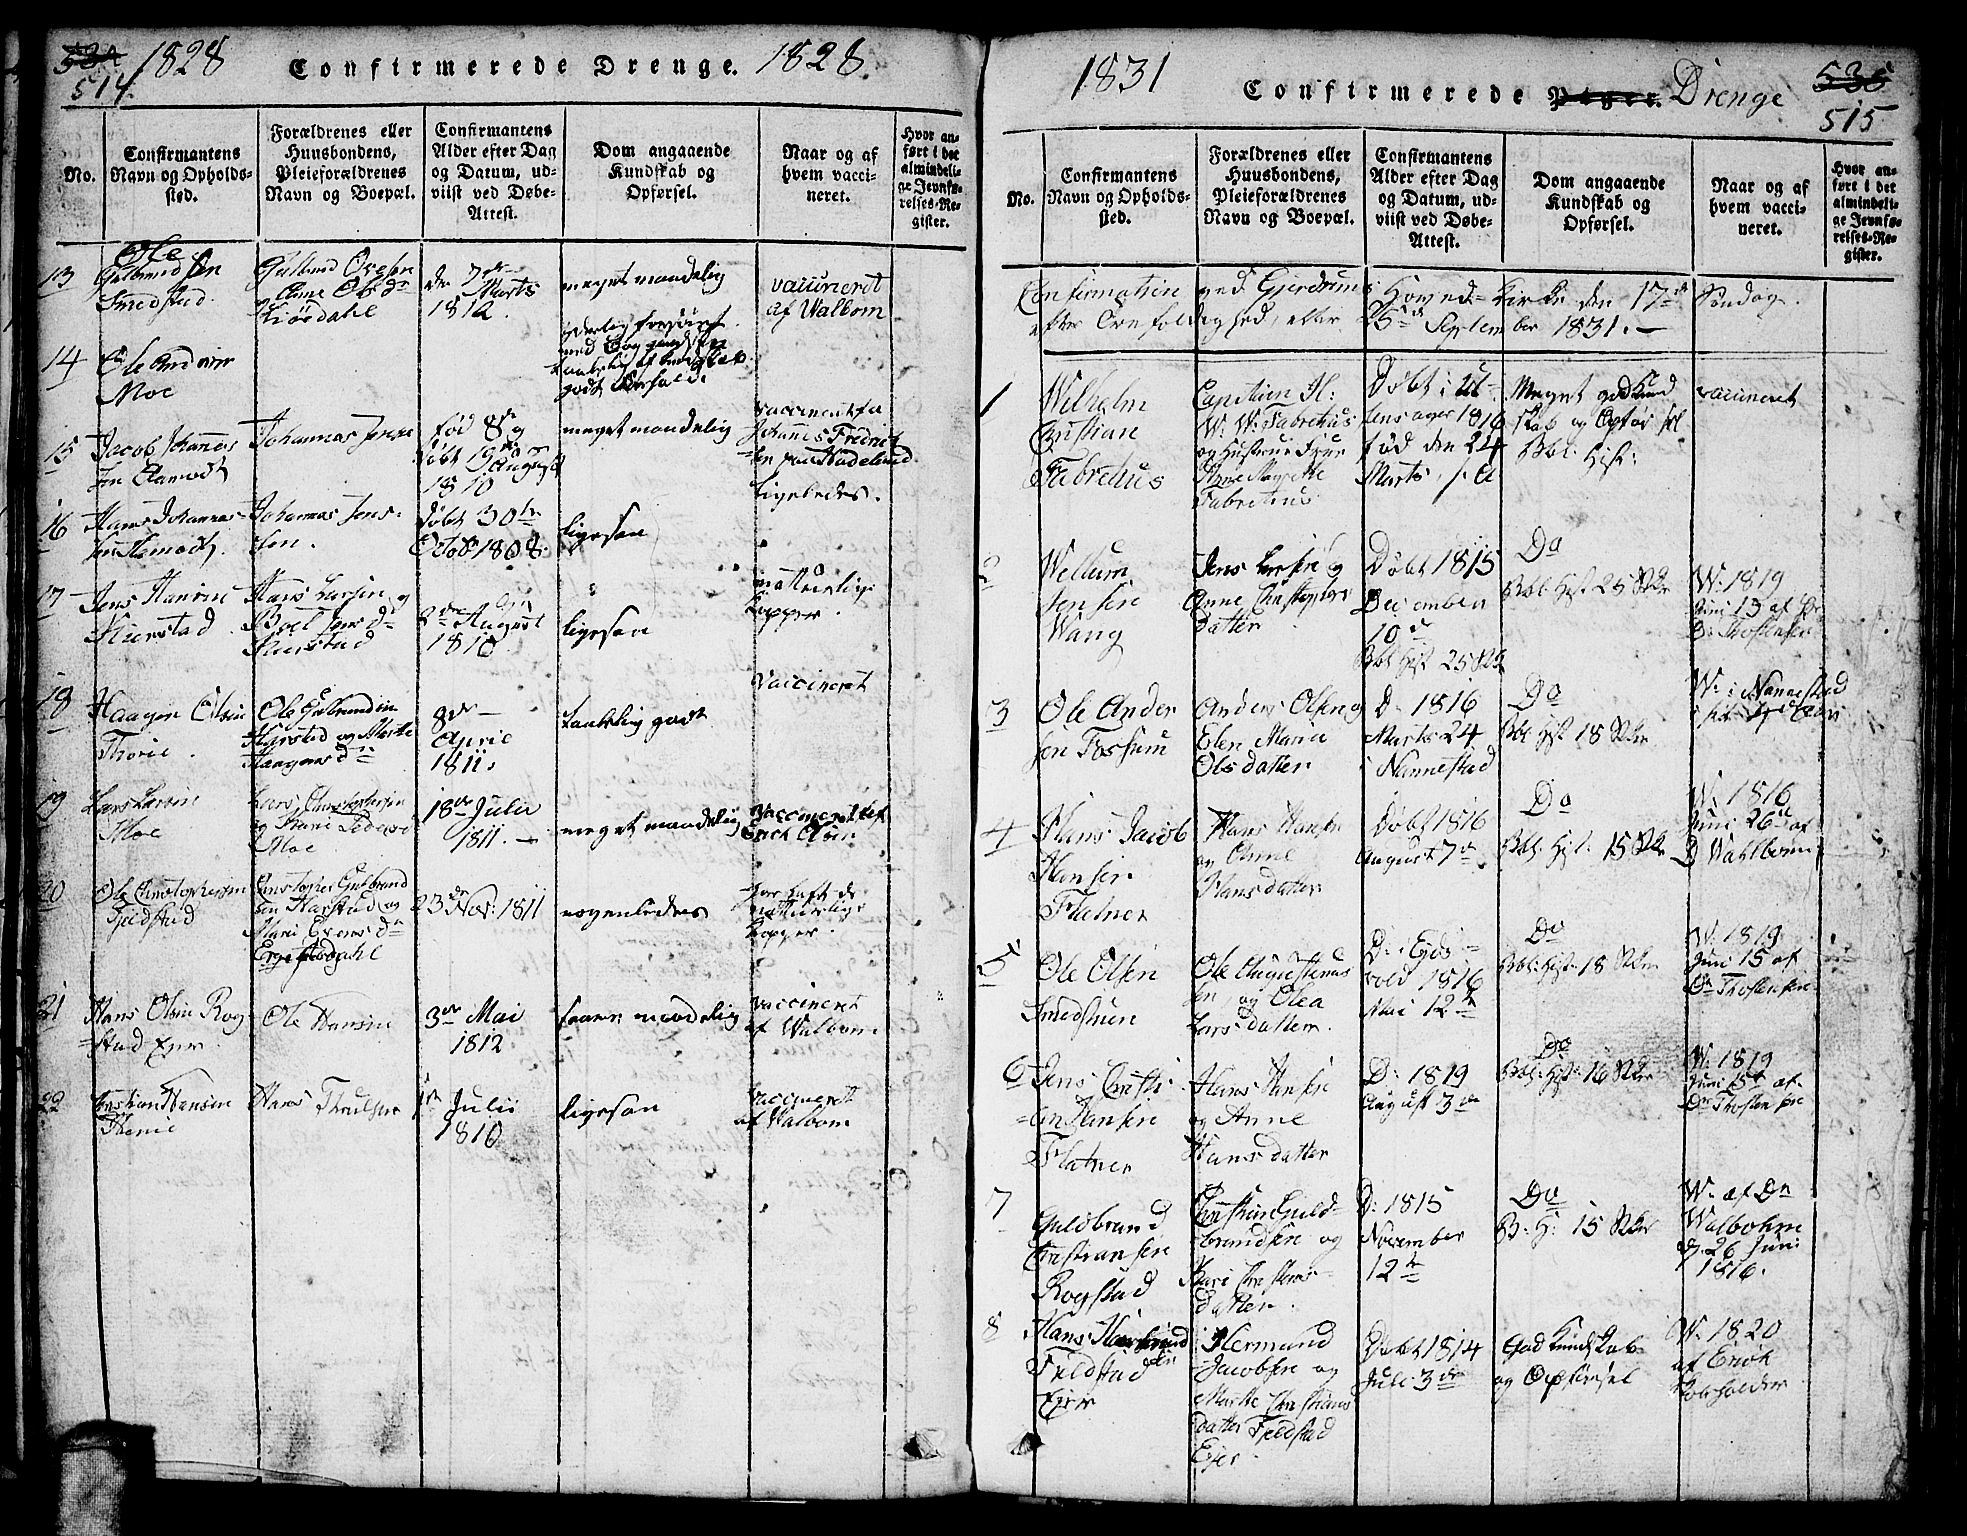 534
514.
1828
Confirmerede Drenge.
1828.
No.
Confirmantens
Navn og Opholds-
sted.
Forældrenes eller
Huusbondens,
Pleieforældrenes
Navn og Boepæl.
Confirmantens
Alder efter Dag
og Datum, ud-
viist ved Døbe-
Attest.
Dom angaaende
Kundskab og
Opførsel.
Naar og af
hvem vacci-
neret.
Hvor an-
ført i det
almindeli-
ge Jevnfø-
relses-Re-
gister.
13
Ole
Gulbrandsen
Smedstad.
Gulbrand Ovesen
Anne Olsdr
den 7de
Marts
1812.
meget maadelig
vaccineret
af Walbom
14
Ole Andersen
Moe
godt Forhold.
15
Jacob Johannes
sen Aamodt
Johannes Jensen
fød 8 og
døbt 19de August
1810
meget maadelig
vaccineret fra
Johannes Fredrik
ligeledes.
16
Hans Johannes
sen Aamodt.
Johannes Jens-
sen.
døbt 30te
Octob 1808.
ligesaa
17
Jens Hansen
Kierstad
Hans Larsen og
Boel Jensd
2den August
1810.
ligesaa
naturlige
Kopper.
18
Haagen Olsen
Thorie.
Ole Gulbrandsen
Harstad og Marte
Haagensdr
8de
April
1811.
taalelig godt
vaccineret
19
Lars Larsen
Moe
Lars Christophersen
og Kari Peders
Moe
18de Julii
1811.
meget maadelig
vaccineret af
Erick Olsen
20
Ole Christophersen
Fjeldstad
Christopher Gulbrand
sen Harstad og
Mari Evensdr
23de Nov. 1811
nogenledes
har haft de
naturlige
Kopper.
21
Hans Olsen Rog
stad Ejer.
Ole Hansen
3de Mai
1812
saare maadelig
vaccineret
af Walbom
22
Christian Hansen
Hans Thrulsen
1te Julii
1810
ligesaa
vaccineret
af Walbom
1831
Confirmerede Piger. Drenge
535
515
No.
Confirmantens
Navn og Opholds-
sted.
Forældrenes eller
Huusbondens,
Pleieforældrenes
Navn og Boepæl.
Confirmantens
Alder efter Dag
og Datum, ud-
viist ved Døbe-
Attest.
Dom angaaende
Kundskab og
Opførsel.
Naar og af
hvem vacci-
neret.
Hvor an-
ført i det
almindeli-
ge Jevnfø-
relses-Re-
gister.
Confirmation ved Gjerdrums Hoved-Kirke den 17de Søndag
efter Trefoldighed, eller 25de September 1831.
1
Wilhelm
Christian
Fabretius
Capitain H:
W. W. Fabretius
og Hustrue
Anne Margrethe
Fabretius
Døbt i Ul-
lensager 1816
fød den 24
Marts
Meget god Kund
skab og Opførsel
Bbl: Hist:
vaccineret
2
Wellum
Jensen
Wang
Jens Larsen og
Anne Christophers
datter
Døbt 1815
December
10de
Bbl Hist 25 Skr
Do
Bbl: Hist 25 Skr
W. 1819
Juni 15 af
Dr Thostensen
3
Ole Ander
sen Fossum
Anders Olsen og
Elen Maria
Olsdatter
D. 1816
Marts 24
i Nannestad
Do
Bbl: Hist 18 Skr
W. i Nannestad
4
Hans Jacob
Hansen
Flatner
Hans Hansen
og Anne
Hansdatter
Døbt 1816
August 7de
Do
Bbl. Hist. 15 Skr
W. 1816
Juni 26de af
D Wahlbom
5
Ole Olsen
Ole Augustinus
sen, og Olea
Larsdatter.
D. i Eids-
vold 1816
Mai 12te
Do
Bbl: Hist: 18 Skr
W. 1819
Juni 15 af
Dr Thostensen
6
Jens Christi
an Hansen
Flatner
Hans Hansen
og Anne
Hansdatter
D: 1819
August 3de
Do
Bbl: Hist: 16 Skr
W. 1819
Juni 15t af
Dr Thostensen
7
Guldbrand
Christiansen
Rogstad
Christian Guld-
brandsen og
Kari Christens-
datter.
D: 1815
November
12te
Do
B: H: 15 Skr
W. af Dr
Walbohm
d. 26 Juni
1816.
8
Hans Hermand
sen
Fjeldstad
Ejer
Hermand
Jacobsen og
Marthe Christians
datter Fjeldstad
Ejer.
Døbt 1814
Juli 3de
God Kundskab
og Opførsel
W. 1820
af Erich